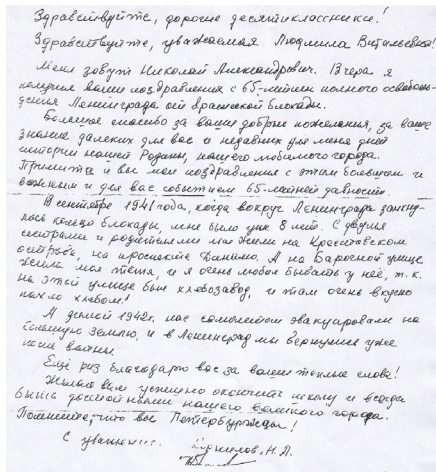 Здравствуйте, дорогие десятиклассники!
Здравствуйте, уважаемая Людмила Витальевна!
Меня зовут Николай Александрович. Вчера я
получил ваши поздравления с 65-летием полного освобож-
дения Ленинграда от вражеской блокады.
Большое спасибо за ваши добрые пожелания, за ваше
знание далеких для вас и недавних для меня дней
истории нашей Родины, нашего любимого города.
Примите и вы мои поздравления с этим большим и
важным и для вас событием 65-летней давности.
В сентябре 1941 года, когда вокруг Ленинграда замкну-
лось кольцо блокады, мне было уже 8 лет. С двумя
сестрами и родителями мы жили на Крестовском
острове, на проспекте Динамо. А на Барочной улице
жила моя тетя, и я очень любил бывать у неё, т.к.
на этой улице был хлебозавод, и там очень вкусно
пахло хлебом!
А зимой 1942г. нас самолетом эвакуировали на
Большую Землю, и в Ленинград мы вернулись уже
после войны.
Ещё раз благодарю вас за ваши теплые слова!
Желаю вам успешно окончить школу и всегда
быть достойными нашего великого города.
Помните, что вы Петербуржцы!
С уважением. Н.А.